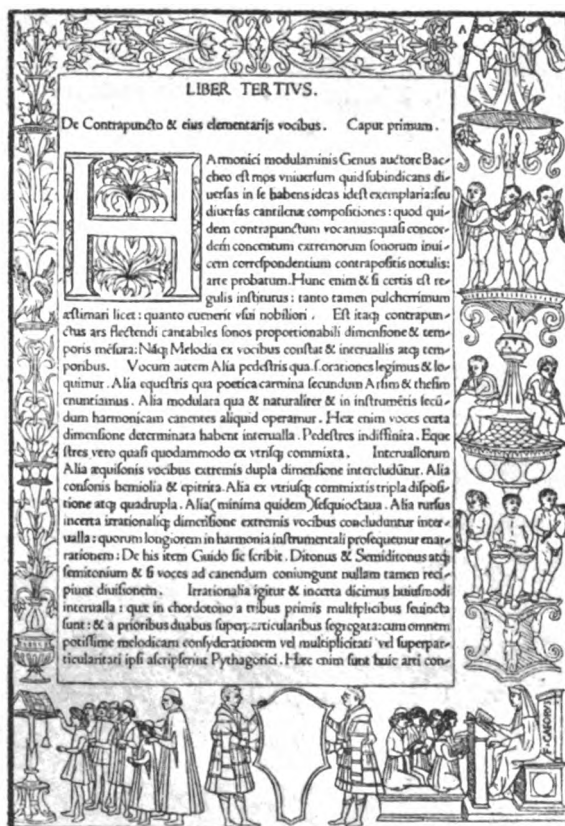 LIBER TERTIVS.
De Contrapuncto & eius elementarijs vocibus. Caput primum.
HArmonici modulaminis Genus auctore Bac-
cheo est mos vniuersum quid subindicans di-
uersas in se habens ideas idest exemplaria: seu
diuersas cantilenæ compositiones: quod qui-
dem contrapunctum vocamus: quasi concor-
dem concentum extremorum sonorum inui-
cem correspondentium contrapositis notulis:
arte probatum. Hunc enim & si certis est re-
gulis institutus: tanto tamen pulcherrimum
æstimari licet: quanto euenerit vsui nobiliori. Est itaq; contrapun-
ctus ars flectendi cantabiles sonos proportionabili dimensione & tem-
poris mēsura: Nāq; Melodia ex vocibus constat & interuallis atq; tem-
poribus. Vocum autem Alia pedestris qua s. orationes legimus & lo-
quimur. Alia equestris qua poetica carmina secundum Arsim & thesim
enuntiamus. Alia modulata qua & naturaliter & in instrumētis secū-
dum harmonicam canentes aliquid operamur. Hæ enim voces certa
dimensione determinata habent interualla. Pedestres indiffinita. Eque
stres vero quasi quodammodo ex vtrisq; commixta. Interuallorum
Alia æquisonis vocibus extremis dupla dimensione intercludūtur. Alia
consonis hemiolia & epitrita. Alia ex vtriusq; commixtis tripla disposi-
tione atq; quadrupla. Alia (minima quidem) sesquioctaua. Alia rursus
incerta irrationaliq; dimensione extremis vocibus concluduntur inter-
ualla: quorum longiorem in harmonia instrumentali prosequemur enar-
rationem: De his item Guido sic scribit. Ditonus & Semiditonus atq;
semitonium & si voces ad canendum coniungunt nullam tamen reci-
piunt diuisionem. Irrationalia igitur & incerta dicimus huiusmodi
interualla: quæ in chordotono a tribus primis multiplicibus seiuncta
sunt: & a prioribus duabus superparticularibus segregata: cum omnem
potissime melodicam consyderationem vel multiplicitati vel superpar-
ticularitati ipsi ascripserint Pythagorici. Hæc enim sunt huic arti con-
F. GAFORVS